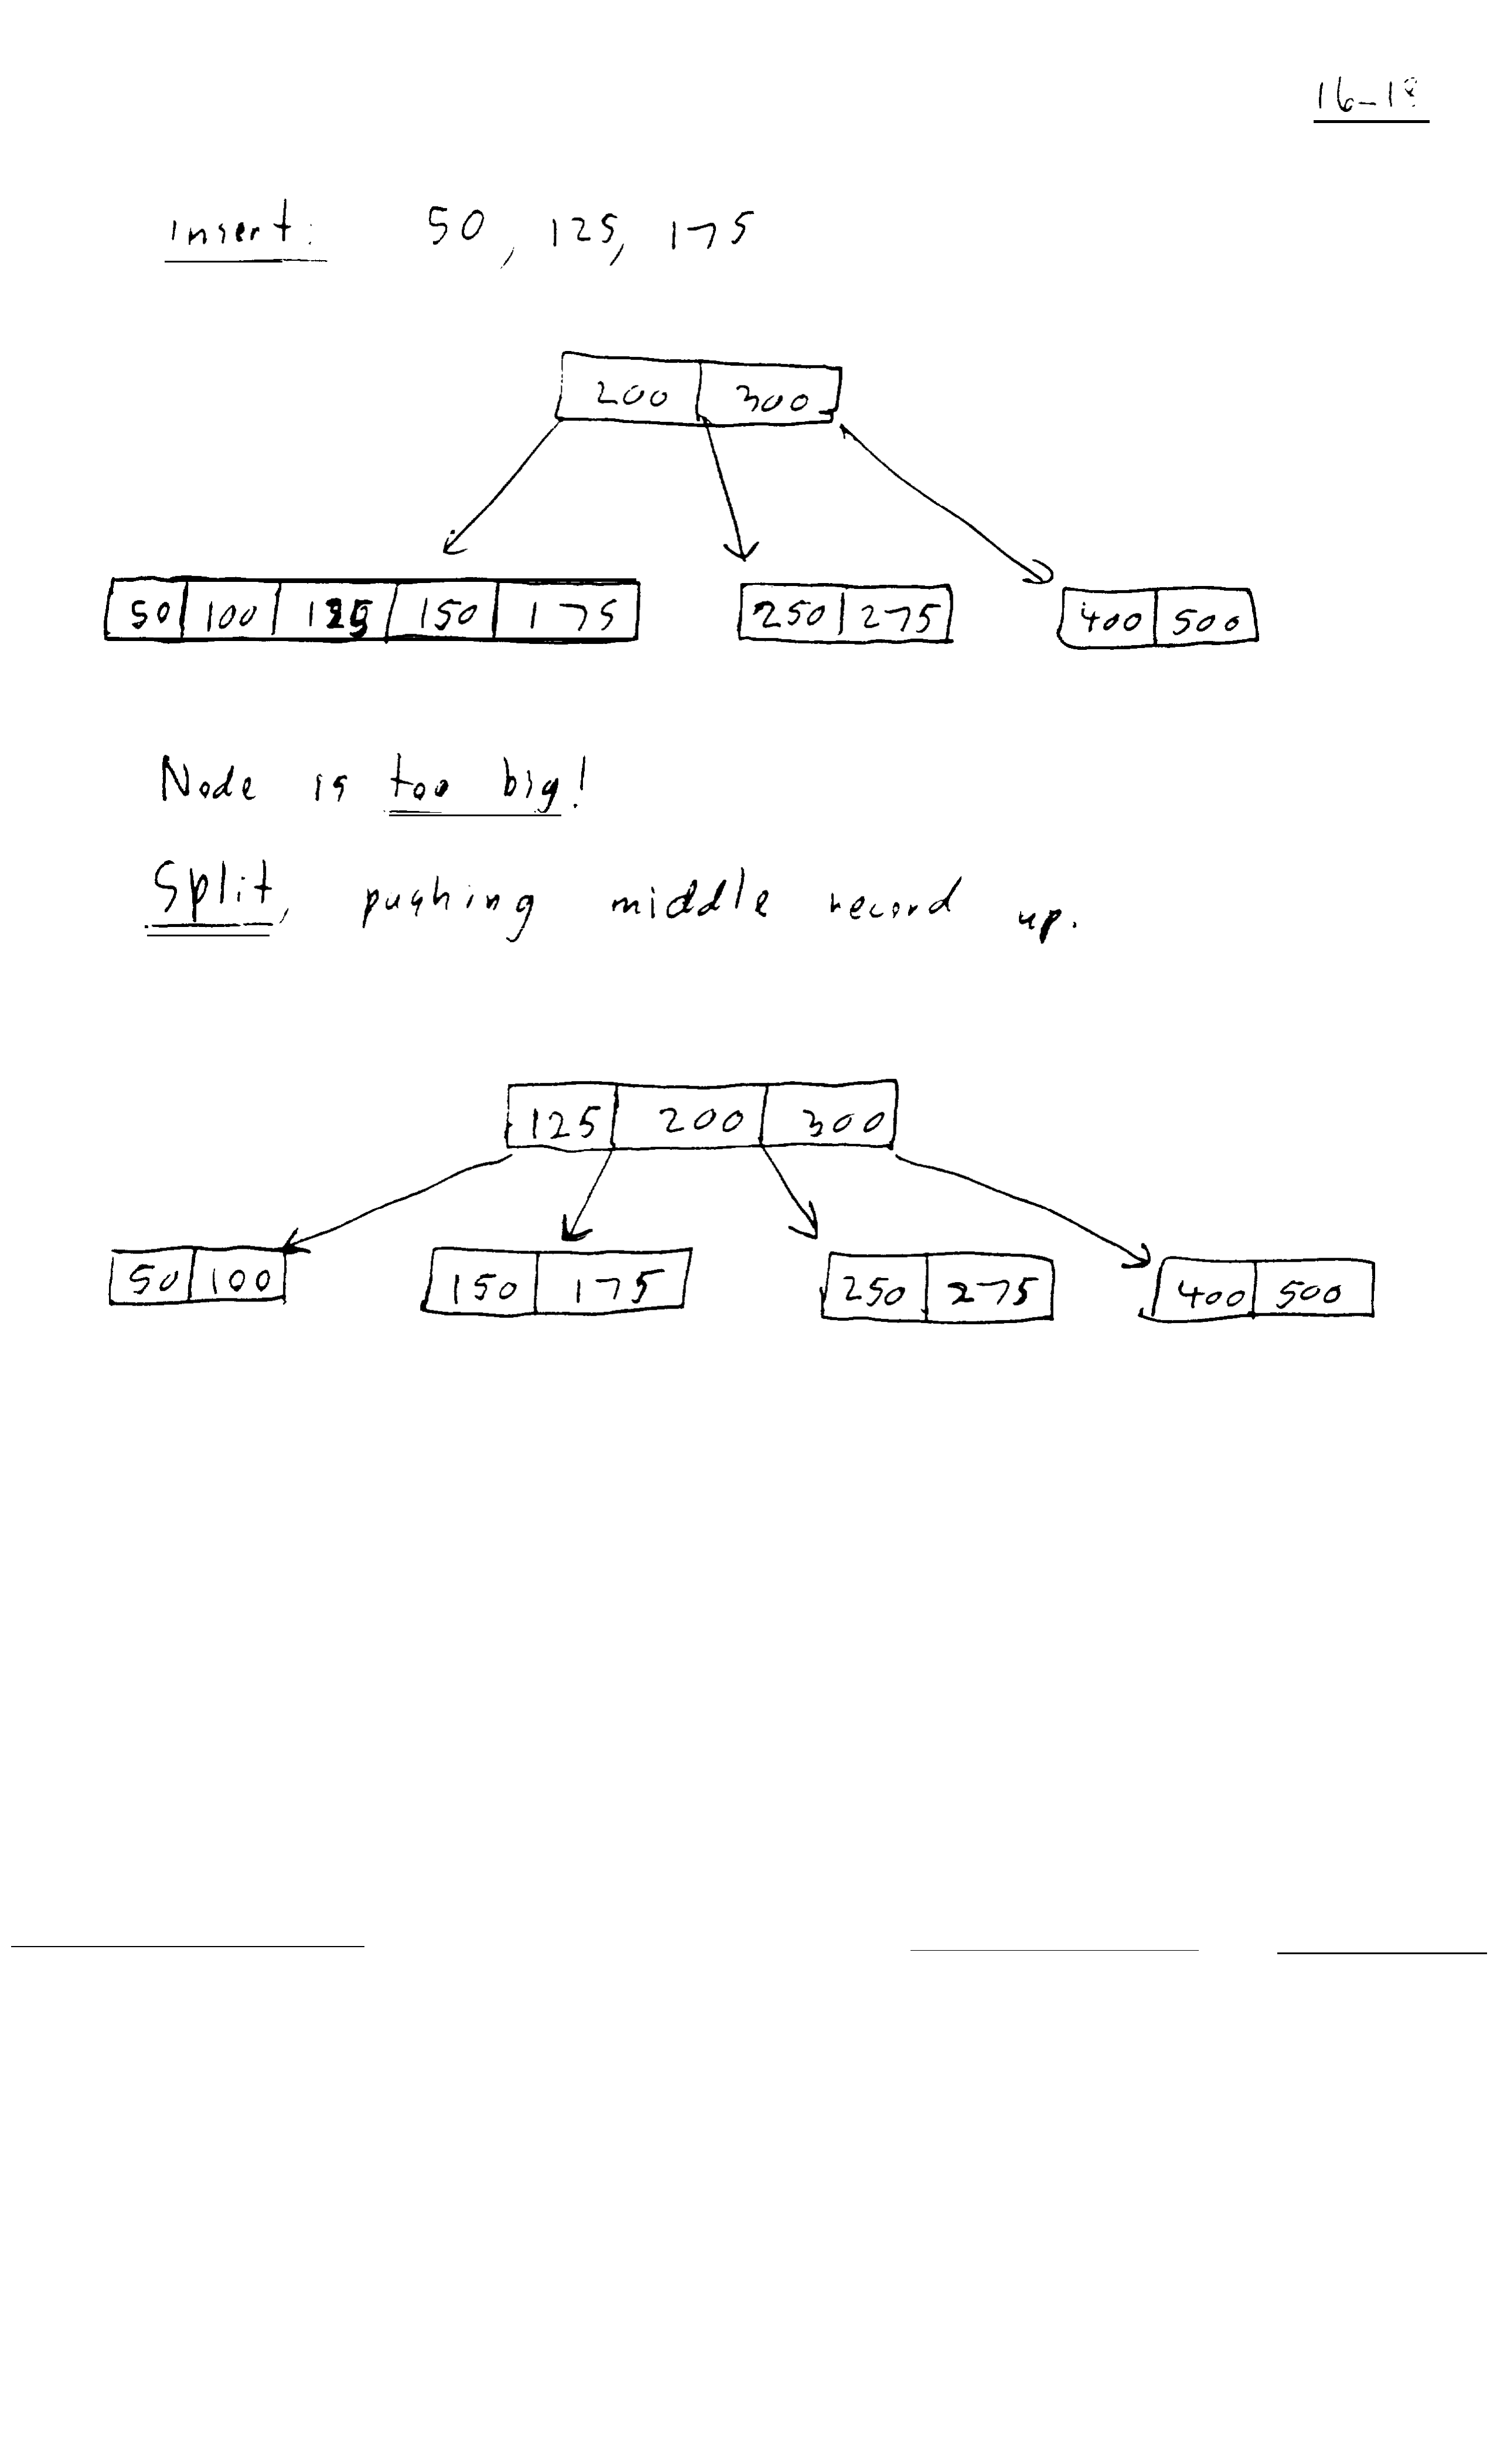 insert: 50, 125, 175
200 300
50 100 125 150 175 250 275 400 500
Node is too big!
Split, pushing middle record up.
125 200 300
50 100 150 175 250 275 400 500